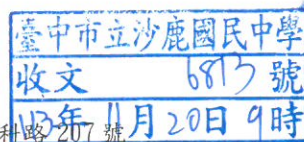 臺中市立沙鹿國民中學
收文 6813 號
113年 11月20日 9時
科路 207 號